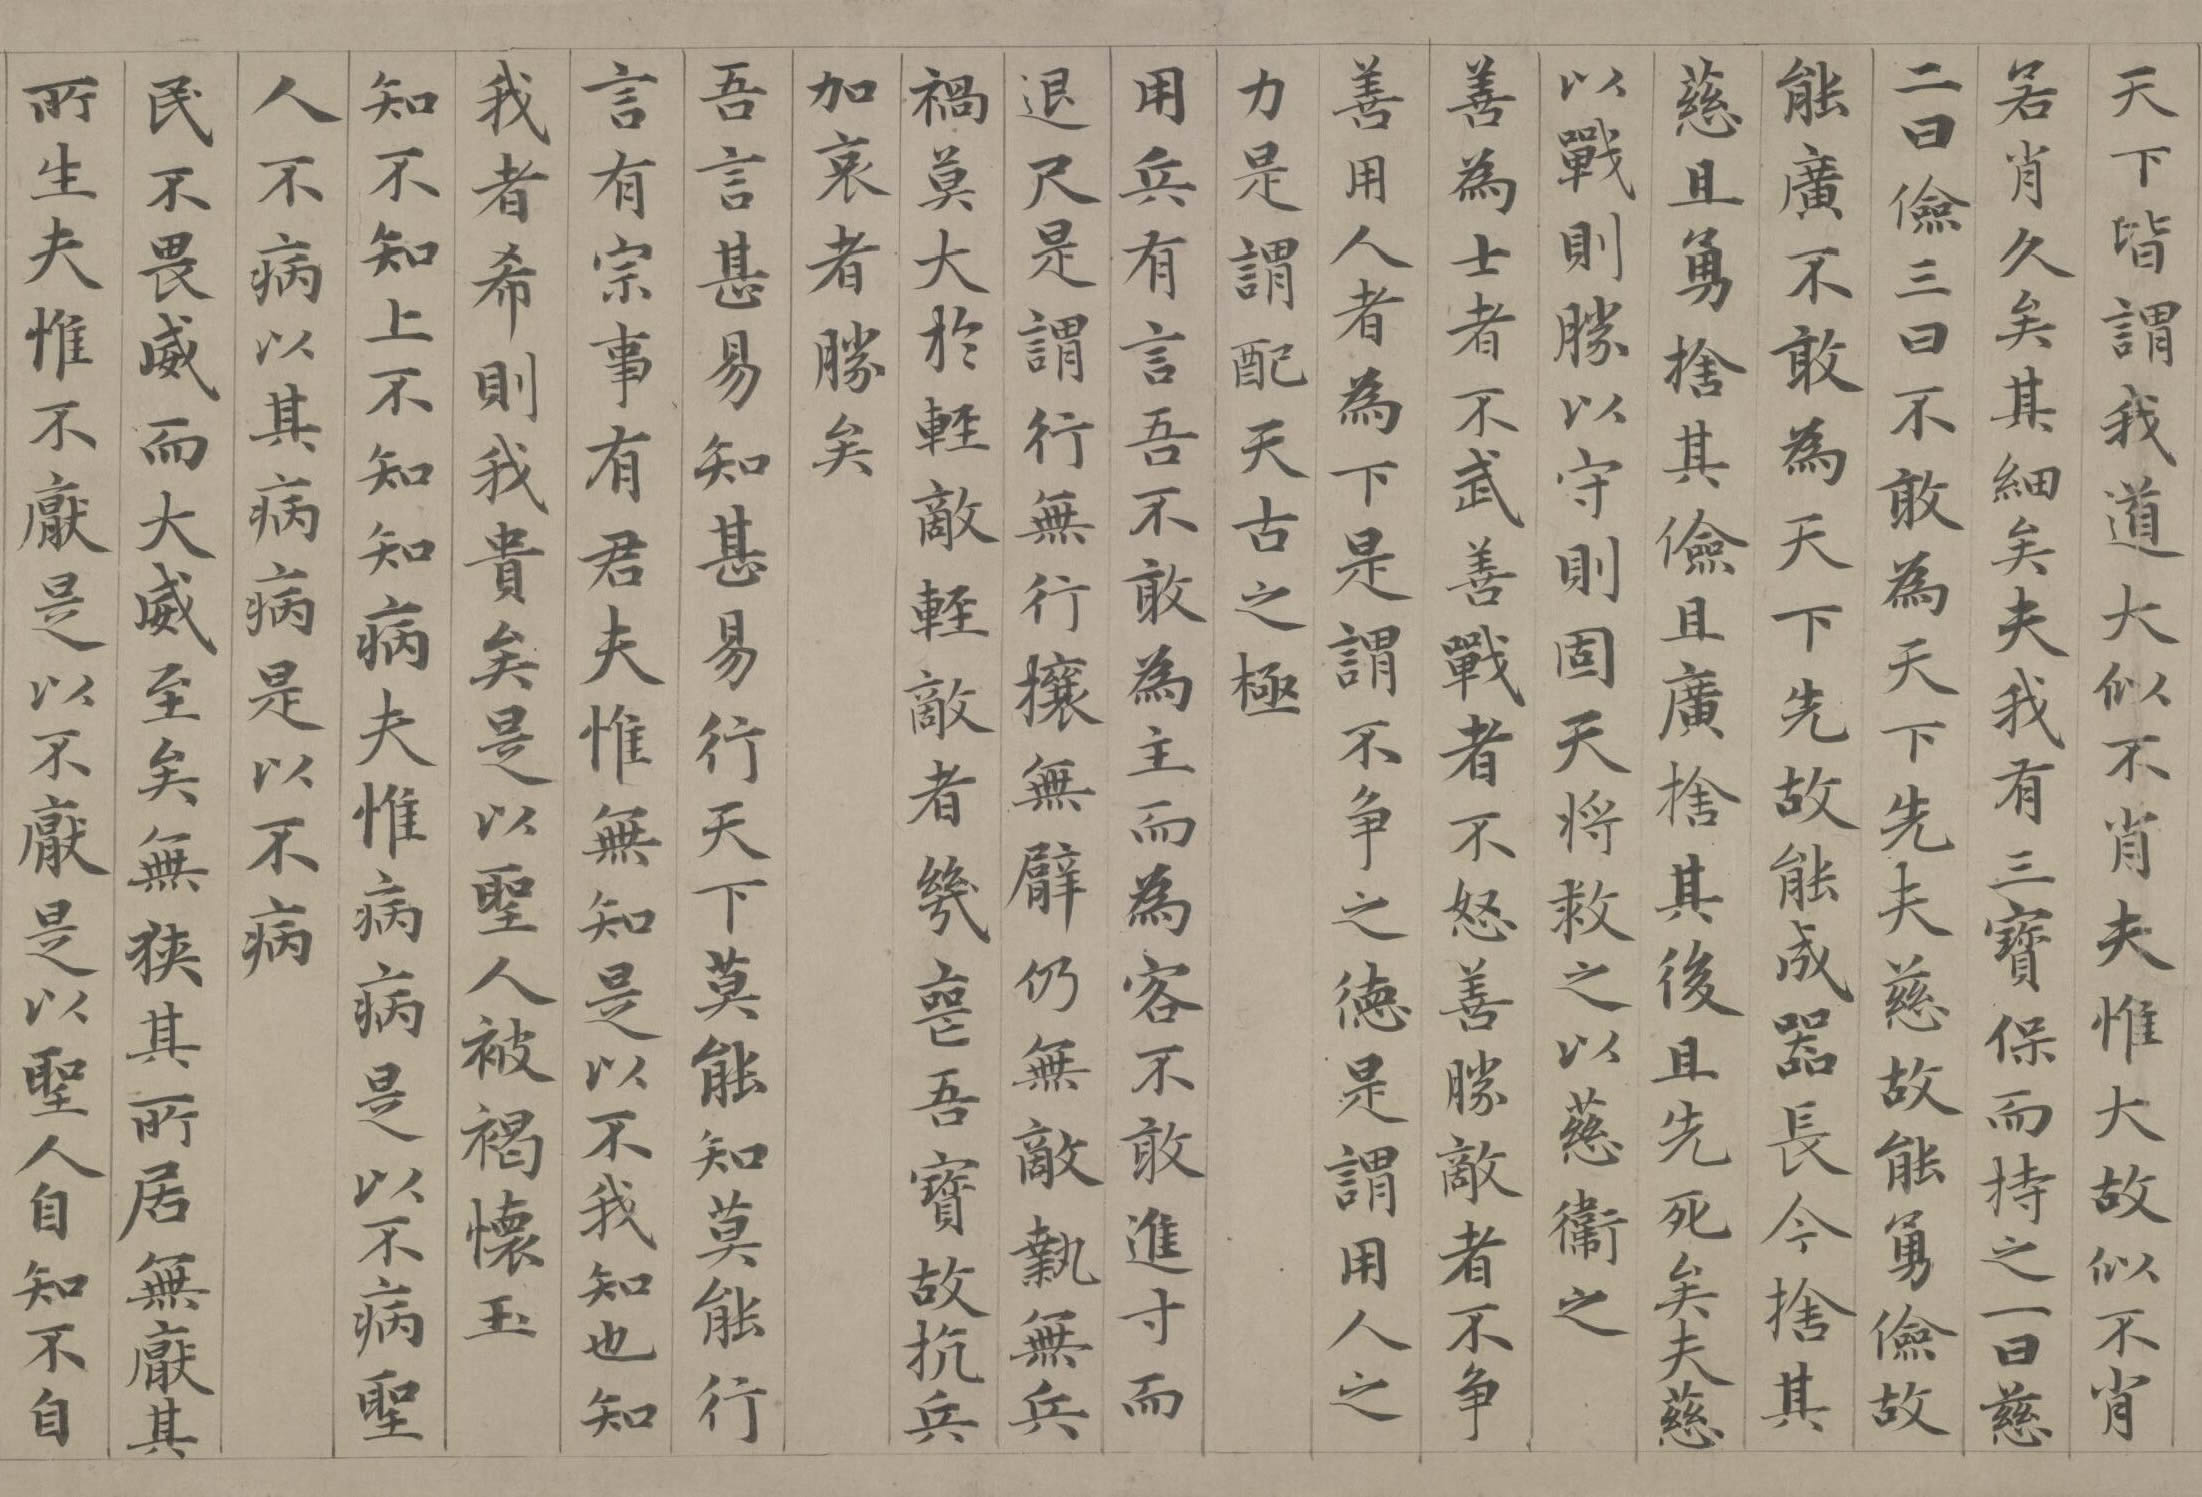 天下皆謂我道大似不肖夫惟大故似不肖
若肖久矣其細矣夫我有三寶保而持之一曰慈
二曰儉三曰不敢為天下先夫慈故能勇儉故
能廣不敢為天下先故能成器長今捨其
慈且勇捨其儉且廣捨其後且先死矣夫慈
以戰則勝以守則固天将救之以慈衛之
善為士者不武善戰者不怒善勝敵者不争
善用人者為下是謂不争之德是謂用人之
力是謂配天古之極
用兵有言吾不敢為主而為客不敢進寸而
退尺是謂行無行攘無臂仍無敵執無兵
禍莫大於輕敵輕敵者幾喪吾寶故抗兵
加哀者勝矣
吾言甚易知甚易行天下莫能知莫能行
言有宗事有君夫惟無知是以不我知也知
我者希則我貴矣是以聖人被褐懷玉
知不知上不知知病夫惟病病是以不病聖
人不病以其病病是以不病
民不畏威而大威至矣無狹其所居無厭其
所生夫惟不厭是以不厭是以聖人自知不自